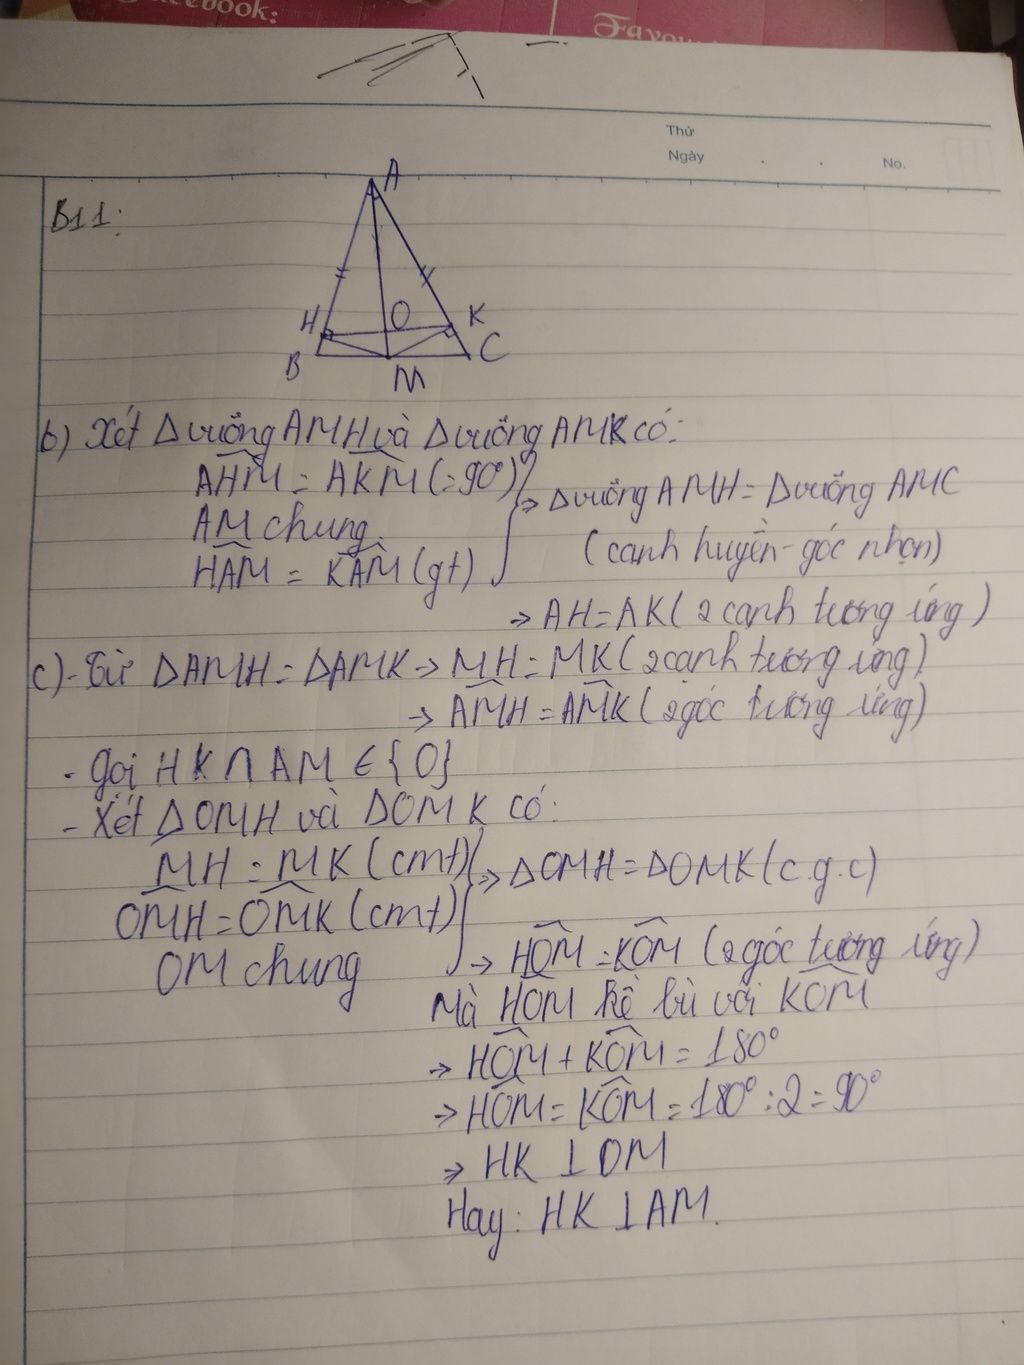 Facebook:
Favou
Thứ
Ngày . . No.
B11:
A
H O K
B M C
b) Xét Δ vuông AMH và Δ vuông AMK có:
AHM = AKM (=90°)
AM chung
HAM = KAM (gt)
→ Δ vuông AMH = Δ vuông AMC
(cạnh huyền - góc nhọn)
→ AH = AK (2 cạnh tương ứng)
c) - Từ ΔAMH = ΔAMK → MH = MK (2 cạnh tương ứng)
→ AMH = AMK (2 góc tương ứng)
- Gọi HK ∩ AM ∈ {O}
- Xét ΔOMH và ΔOMK có:
MH = MK (cmt)
OMH = OMK (cmt)
OM chung
→ ΔOMH = ΔOMK (c.g.c)
→ HOM = KOM (2 góc tương ứng)
Mà HOM kề bù với KOM
→ HOM + KOM = 180°
→ HOM = KOM = 180° : 2 = 90°
→ HK ⊥ OM
Hay: HK ⊥ AM.